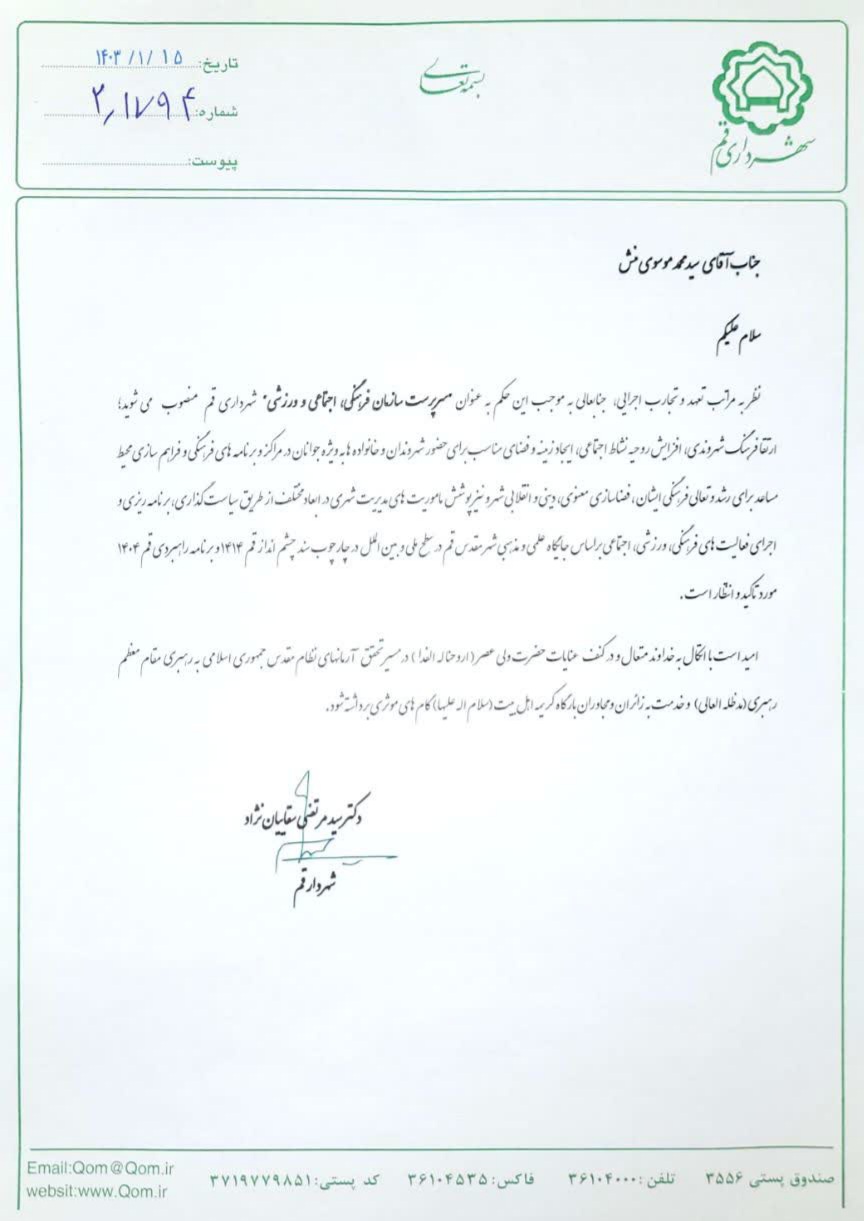 بسمه تعالی
شهرداری قم
تاریخ: ۱۴۰۳/۱/۱۵
شماره: ۲٫۱۷۹۴
پیوست:
جناب آقای سید محمد موسوی منش
سلام علیکم
نظر به مراتب تعهد و تجارب اجرایی، جنابعالی به موجب این حکم به عنوان "سرپرست سازمان فرهنگی، اجتماعی و ورزشی" شهرداری قم منصوب می شوید؛
ارتقا فرهنگ شهروندی، افزایش روحیه نشاط اجتماعی، ایجاد زمینه و فضای مناسب برای حضور شهروندان و خانواده ها به ویژه جوانان در مراکز و برنامه های فرهنگی و فراهم سازی محیط
مساعد برای رشد و تعالی فرهنگی ایشان، فضاسازی معنوی، دینی و انقلابی شهر و نیز پوشش ماموریت های مدیریت شهری در ابعاد مختلف از طریق سیاست گذاری، برنامه ریزی و
اجرای فعالیت های فرهنگی، ورزشی، اجتماعی براساس جایگاه علمی و مذهبی شهر مقدس قم در سطح ملی و بین الملل در چارچوب سند چشم انداز قم ۱۴۱۴ و برنامه راهبردی قم ۱۴۰۴
مورد تاکید و انتظار است.
امید است با اتکال به خداوند متعال و در کنف عنایات حضرت ولی عصر (ارواحناله الفدا) در مسیر تحقق آرمانهای نظام مقدس جمهوری اسلامی به رهبری مقام معظم
رهبری (مدظله العالی) و خدمت به زائران و مجاوران بارگاه کریمه اهل بیت (سلام اله علیها) گام های موثری برداشته شود.
دکتر سید مرتضی سقاییان نژاد
شهردار قم
صندوق پستی ۳۵۵۶ تلفن: ۳۶۱۰۴۰۰۰ فاکس: ۳۶۱۰۴۵۳۵ کد پستی: ۳۷۱۹۷۷۹۸۵۱
Email:Qom@Qom.ir
websit:www.Qom.ir